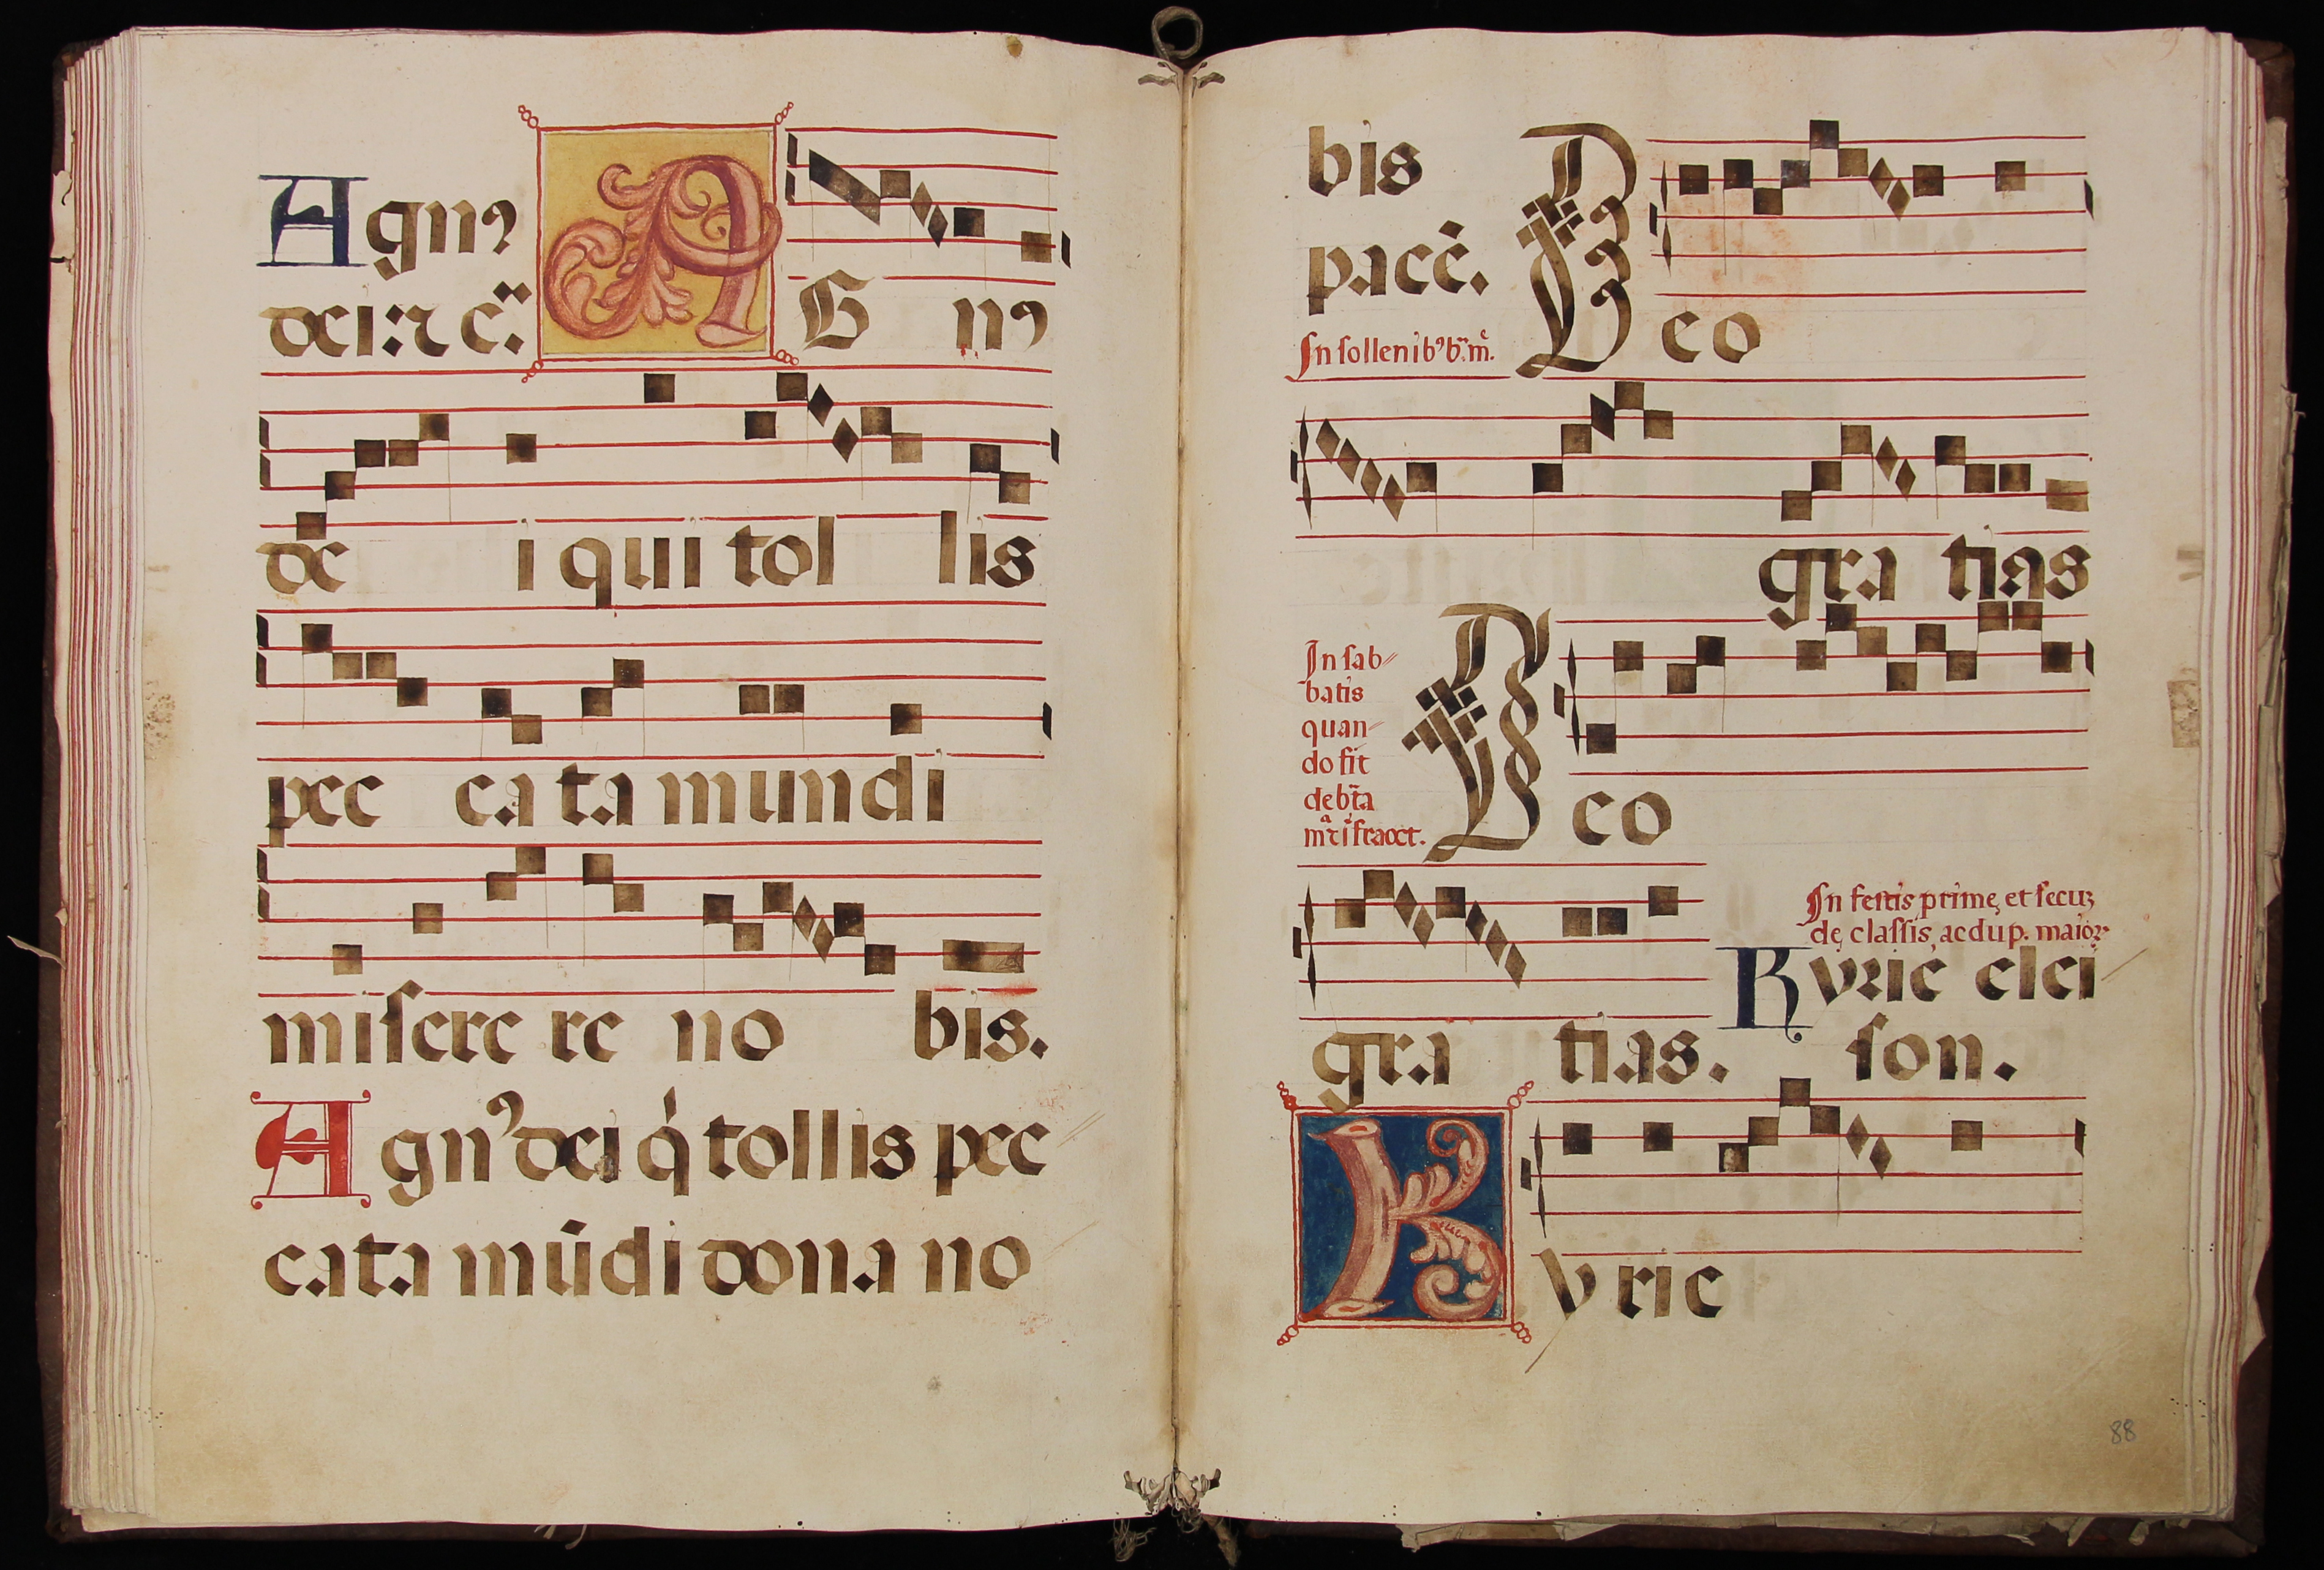 Agnꝰ
dei: ⁊ c̈.
A G nꝰ
de i qui tol lis
pec ca ta mundi
misere re no bis.
Agnꝰ dei q̇ tollis pec
cata mūdi dona no
bis
pacē.
In sollenibꝰ b. m.
Deo
gra tias
In sab⸗
batis
quan⸗
do fit
de bta
Deo
gra tias.
In festis primę et secuȝ
dę classis, ac dup. maior.
Kyrie elei
son.
Kyrie
88